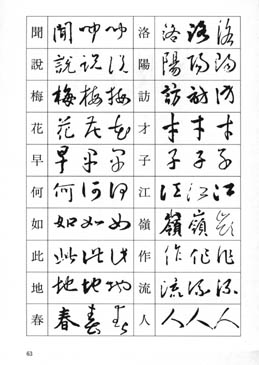 洛 洛 洛 洛
陽 陽 陽 陽
訪 訪 訪 訪
才 才 才 才
子 子 子 子
江 江 江 江
嶺 嶺 嶺 嶺
作 作 作 作
流 流 流 流
人 人 人 人
聞 聞 聞 聞
說 說 說 說
梅 梅 梅 梅
花 花 花 花
早 早 早 早
何 何 何 何
如 如 如 如
此 此 此 此
地 地 地 地
春 春 春 春
63